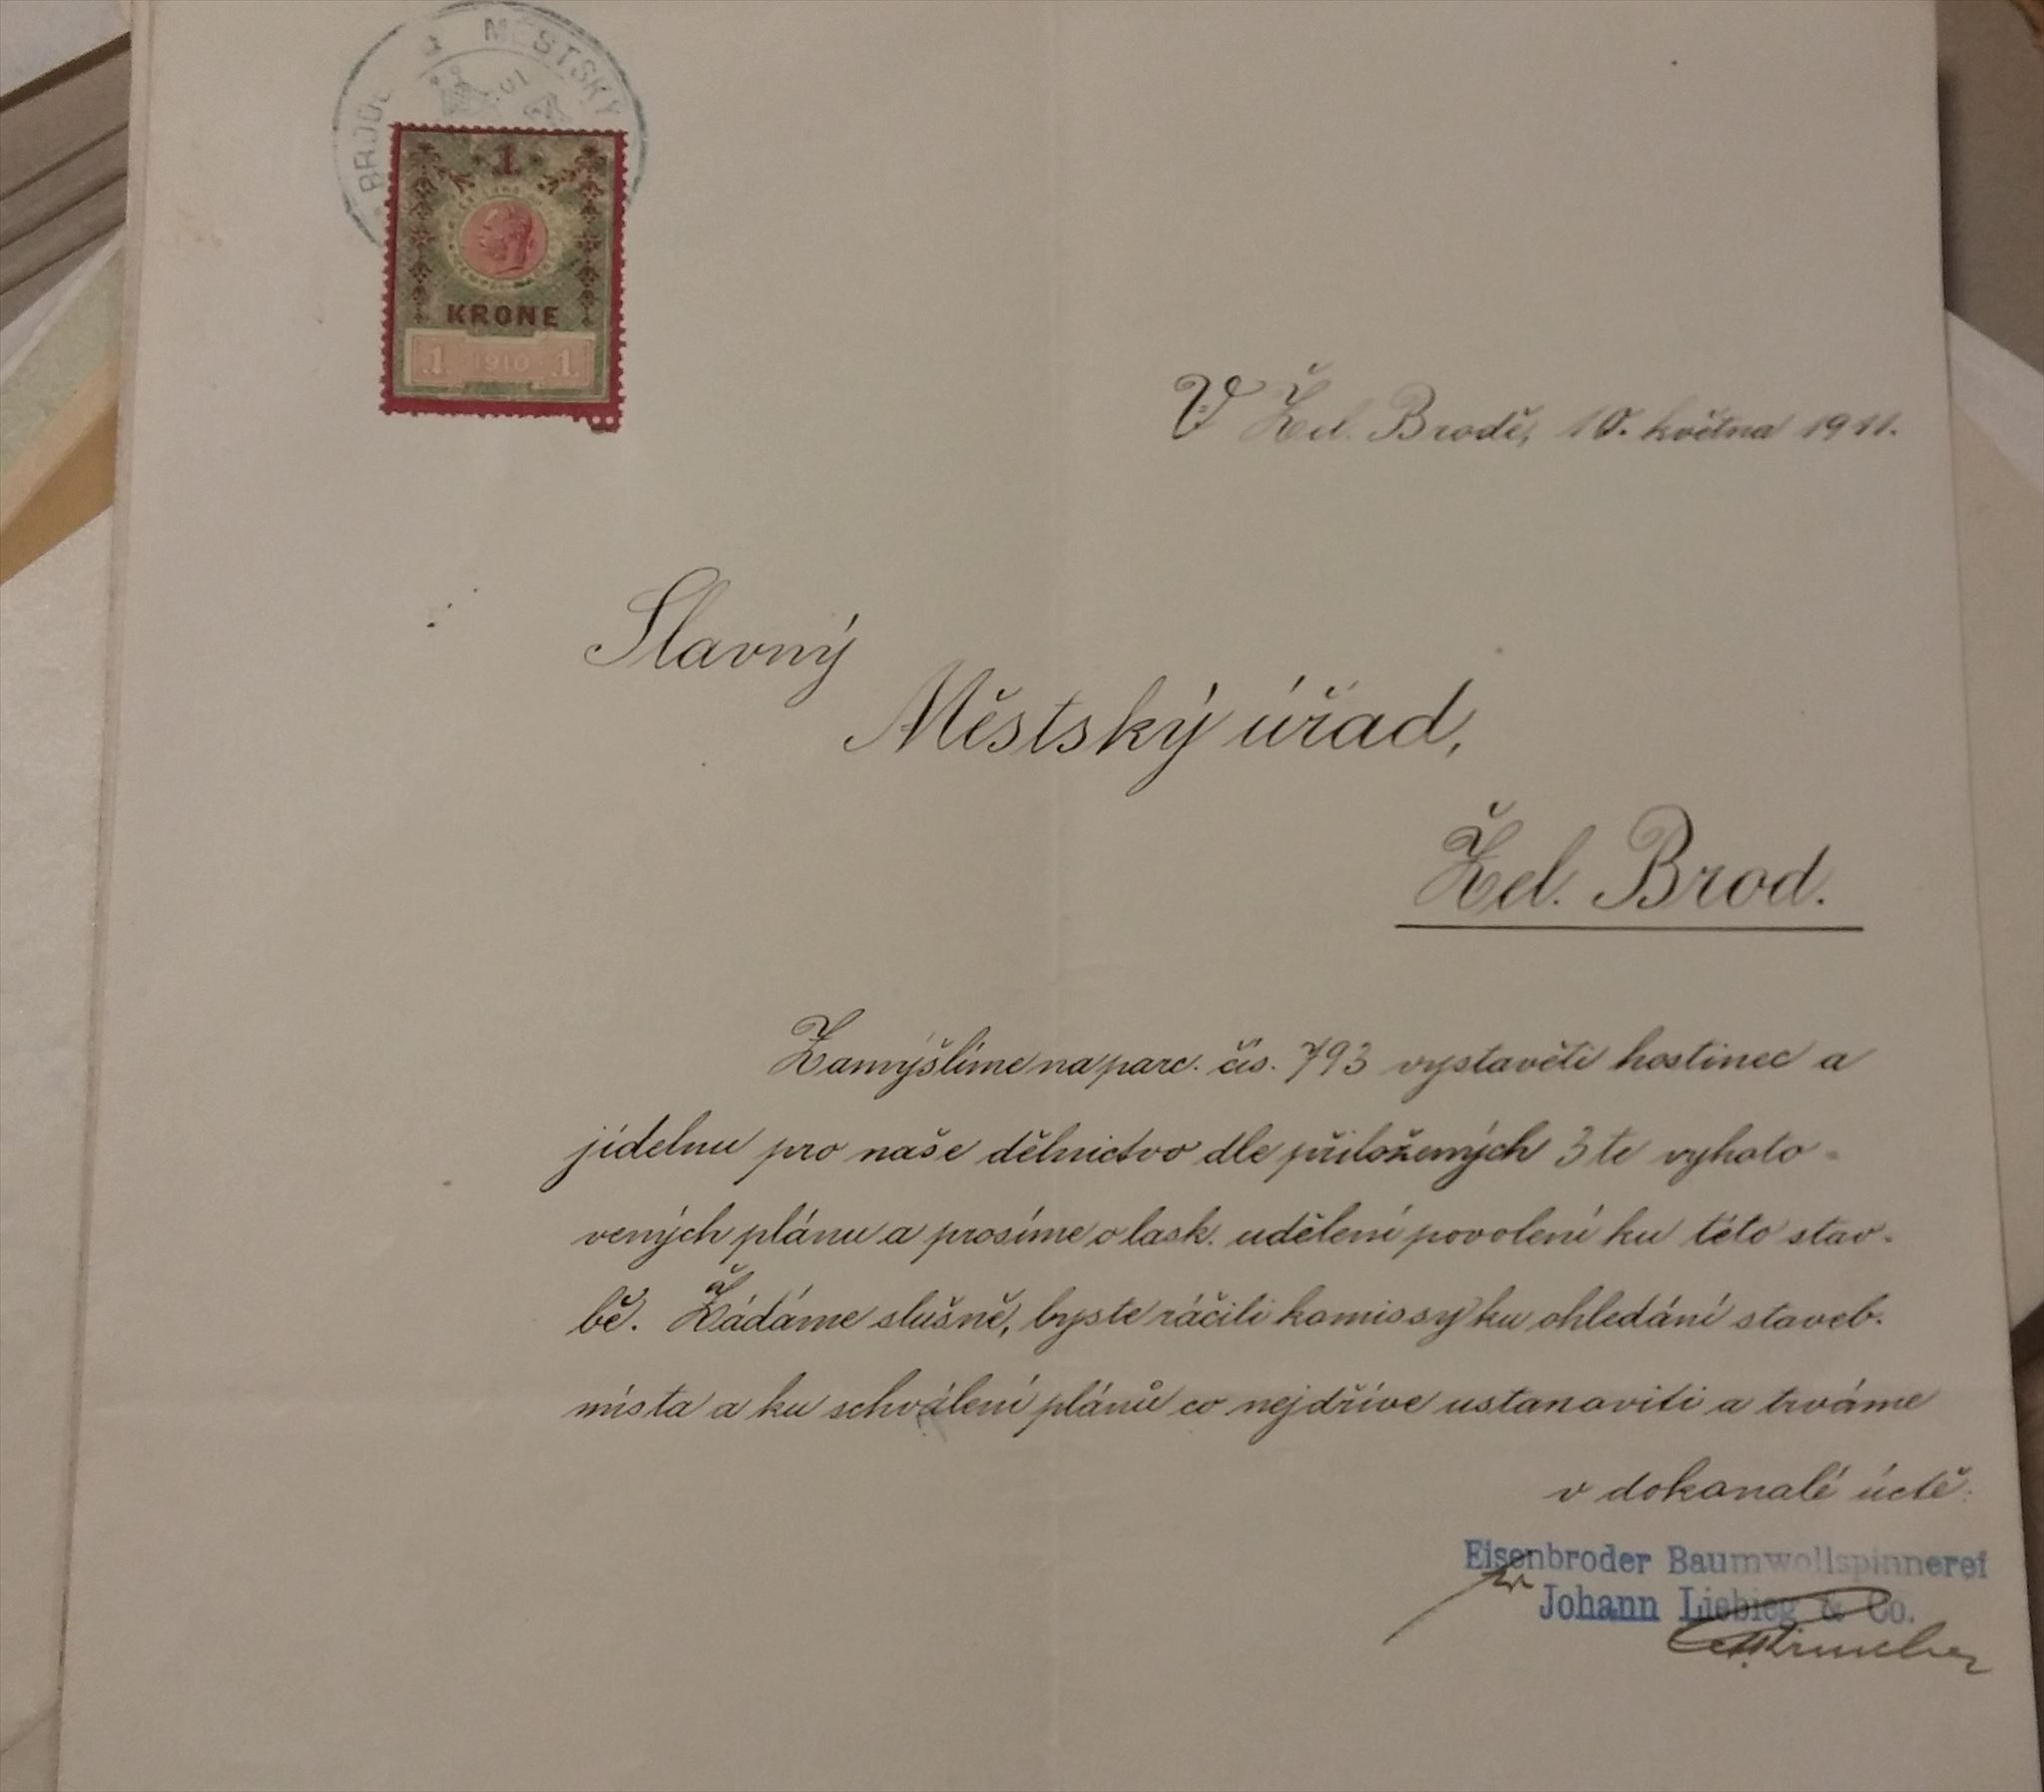 MĚSTSKÝ
1
KRONE
1 1910 1
V Žel. Brodě, 10. května 1911.
Slavný
Městský úřad,
Žel. Brod.
Zamýšlíme na parc. čís. 793 vystavěti hostinec a
jídelnu pro naše dělnictvo dle přiložených 3 te vyhoto-
vených plánu a prosíme o lask. udělení povolení ku této stav-
bě. Žádáme slušně, byste ráčili komissy ku ohledání staveb.
místa a ku schválení plánů co nejdříve ustanoviti a trváme
v dokonalé úctě:
Eisenbroder Baumwollspinnerei
Johann Liebieg & Co.